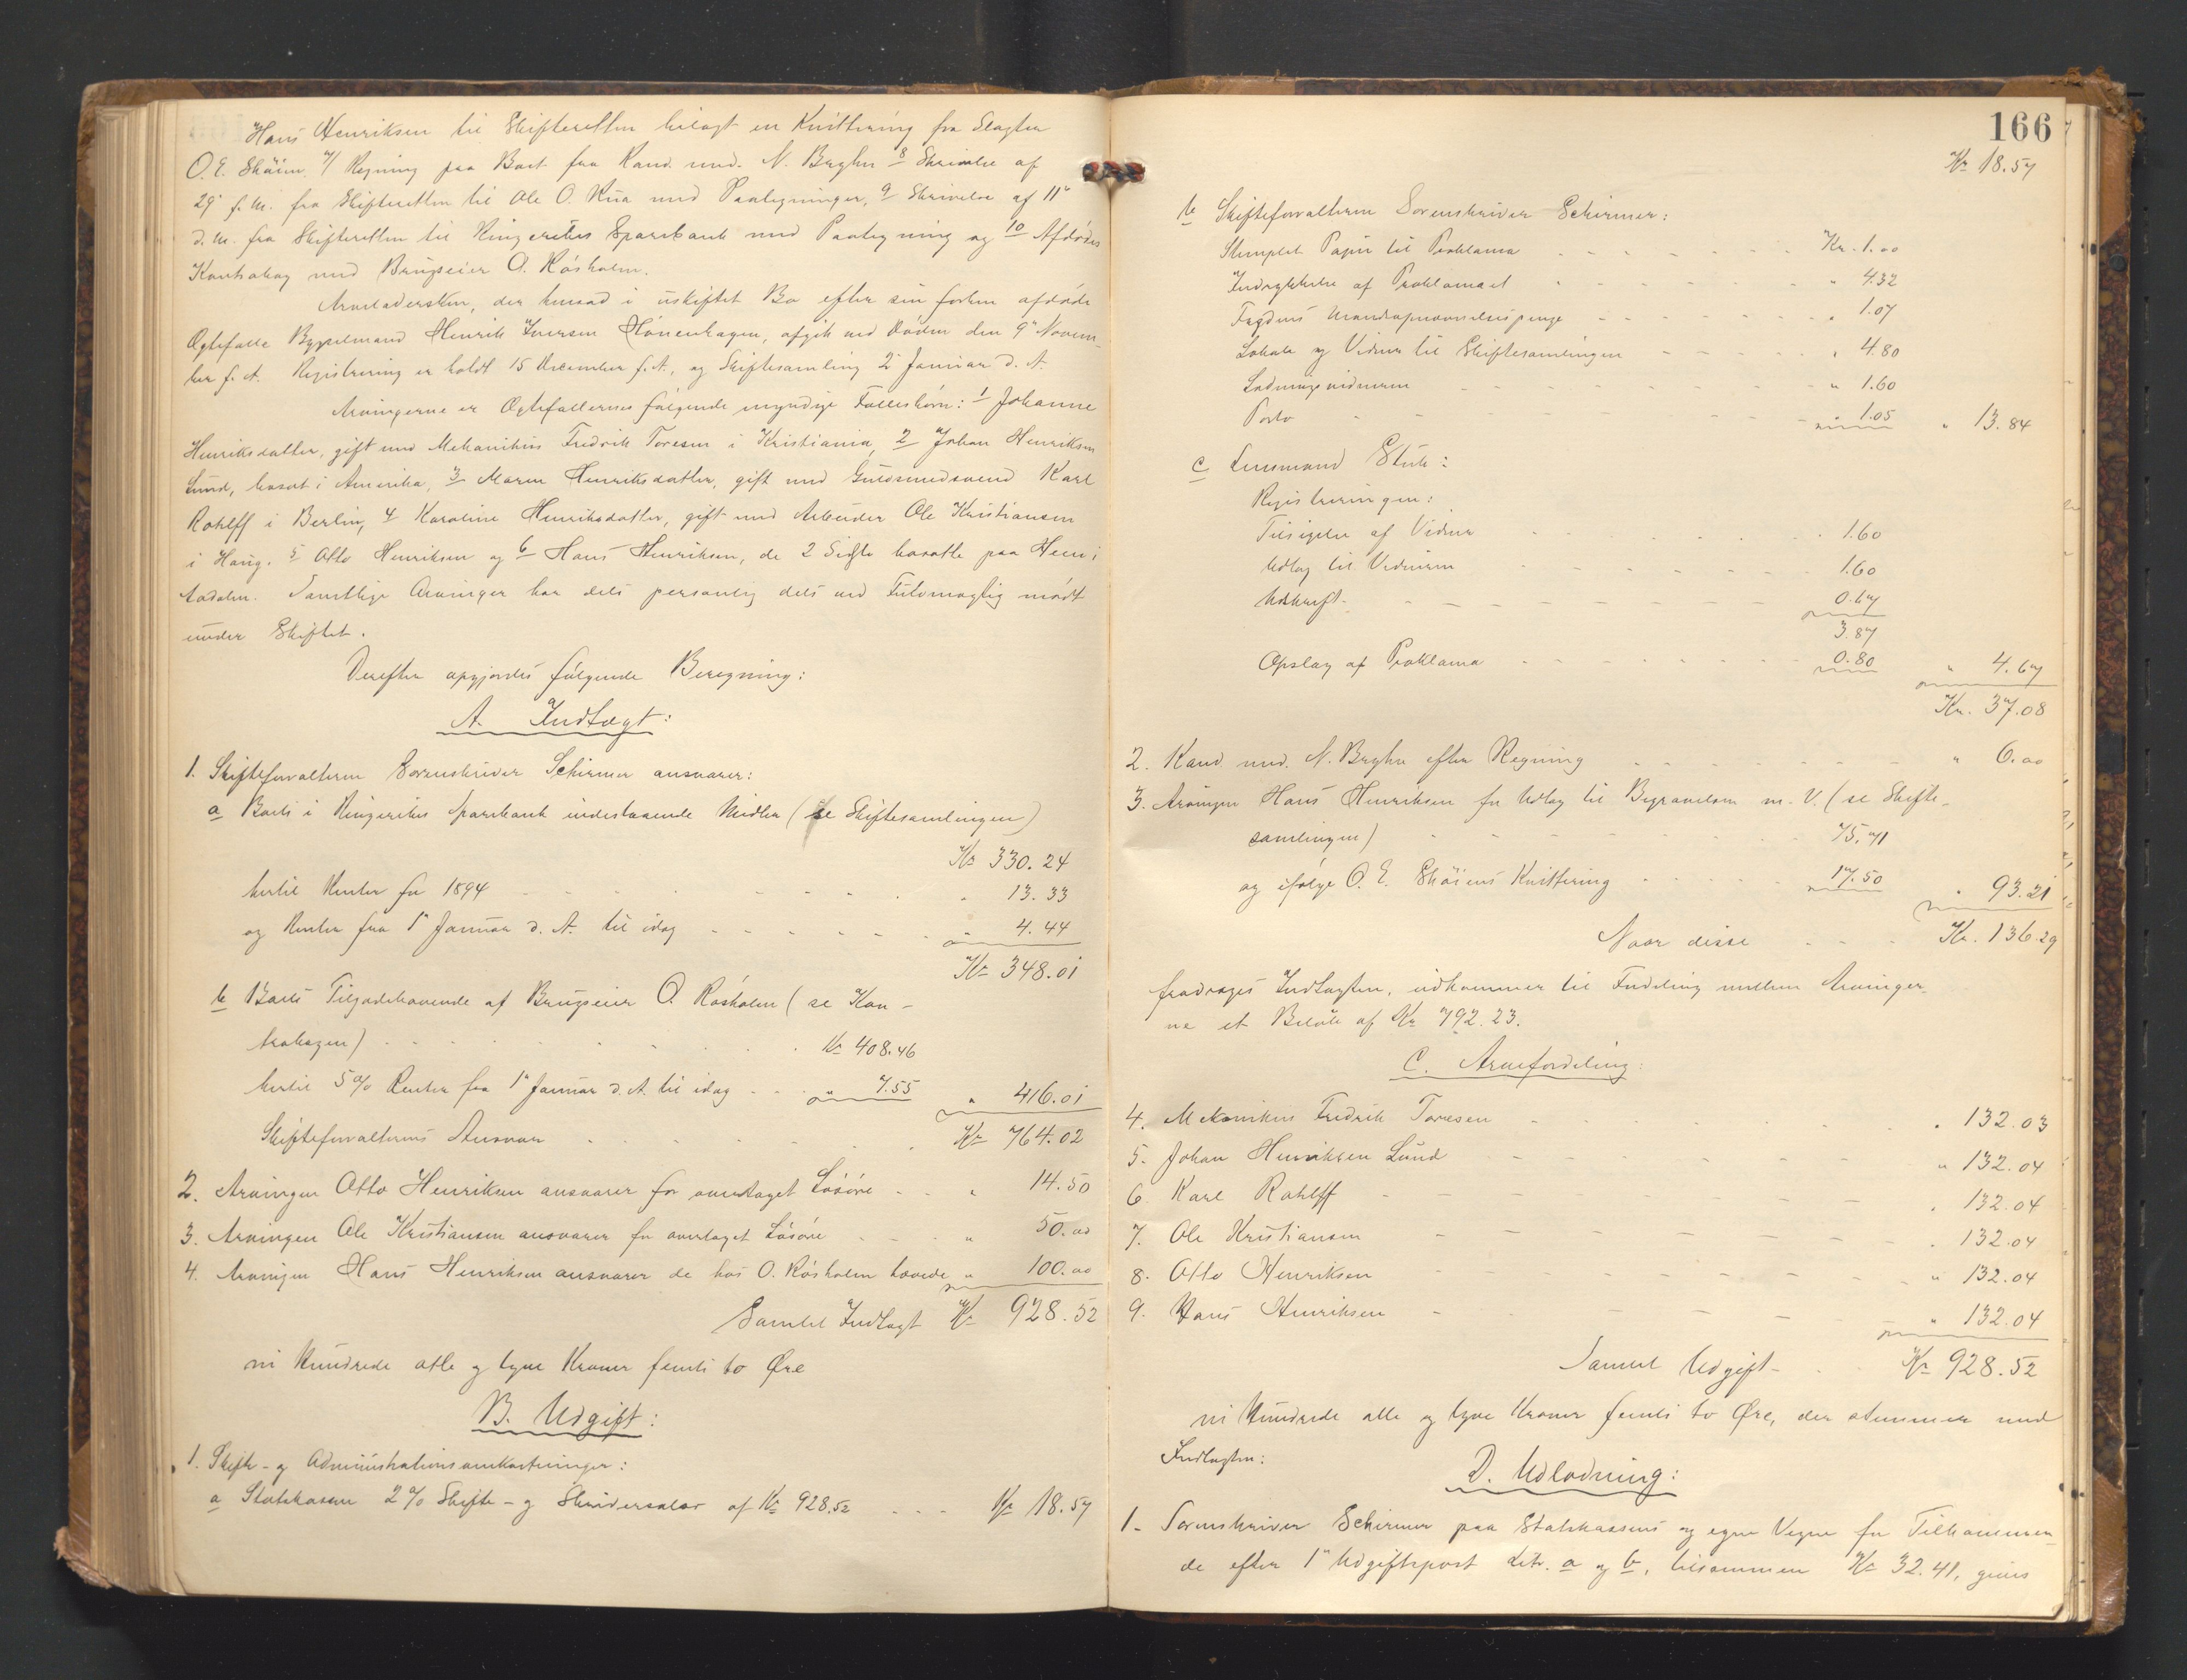 Hans Henriksen til Skifteretten bilagt en Kvittering fra Slagter
O. E. Skøien, 7/ Regning paa Boet fra Kand. med. N. Bryhn 8 Skrivelse af
29' f. M. fra Skifteretten til Ole O. Rua med Paategninger, 9 Skrivelse af 11'
d. M. fra Skifteretten til Ringerikes Sparebank med Paategning og 10 Afdødes
Kontrabog med Brugseier O. Røsholm.
Arveladersken, der hensad i uskiftet Bo efter sin forhen afdøde
Ægtefælle Bygselmand Henrik Iversen Hønenhagen, afgik ved Døden den 9' Novem-
ber f. A. Registrering er holdt 15 December f. A., og Skiftesamling 2' Januar d. A.
Arvingerne er Ægtefællernes følgende myndige Fællesbørn: 1 Johanne
Henriksdatter, gift med Mekanikus Fredrik Toresen i Kristiania, 2 Johan Henriksen
Lund, bosat i Amerika, 3 Maren Henriksdatter, gift med Guldsmedsvend Karl
Rohlff i Berlin, 4 Karoline Henriksdatter, gift med Arbeider Ole Kristiansen
i Haug, 5 Otto Henriksen og 6 Hans Henriksen, de 2 Sidste bosatte paa Hen i
Aadalen. Samtlige Arvinger har dels personlig dels ved Fuldmægtig mødt
under Skiftet.
Derefter opgjordes følgende Beregning:
A. Indtægt:
1. Skifteforvalteren Sorenskriver Schirmer ansvarer:
a Boets i Ringerikes Sparebank indestaaende Midler (se Skiftesamlingen)
Kr 330.24
hertil Renter for 1894 - - - " 13.33
og Renter fra 1' Januar d. A. til idag - - - " 4.44
Kr 348.01
b Boets Tilgodehavende af Brugseier O. Røsholm (se Kon-
trabogen) - - - Kr 408.46
hertil 5% Renter fra 1' Januar d. A. til idag - - " 7.55 " 416.01
Skifteforvalterens Ansvar - - - Kr 764.02
2. Arvingen Otto Henriksen ansvarer for overtaget Løsøre - - " 14.50
3. Arvingen Ole Kristiansen ansvarer for overtaget Løsøre - - " 50.00
4. Arvingen Hans Henriksen ansvarer de hos O. Røsholm hævede " 100.00
Samlet Indtægt Kr 928.52
ni Hundrede otte og tyve Kroner femti to Øre
B. Udgift:
1. Skifte- og Administrationsomkostninger:
a Statskassen 2% Skifte- og Skriversalær af Kr 928.52 - - - Kr 18.57
166
Kr 18.57
b Skifteforvalteren Sorenskriver Schirmer:
Stemplet Papir til Proklama - - - Kr. 1.00
Indrykkelse af Proklamaet - - - " 4.32
Fogdens Mandsopnævnelsespenge - - - " 1.07
Lokale og Vidner til Skiftesamlingen - - - " 4.80
Lodningsvidnerne - - - " 1.60
Porto - - - " 1.05 " 13.84
c Lensmand Stub:
Registreringen:
Tilsigelse af Vidner - - - 1.60
Udlæg til Vidnerne - - - 1.60
Udskrift - - - 0.67
3.87
Opslag af Proklama - - - 0.80 " 4.67
Kr. 37.08
2. Kand. med. N. Bryhn efter Regning - - - " 6.00
3. Arvingen Hans Henriksen for Udlæg til Begravelsen m. V. (se Skifte-
samlingen) - - - 75.71
og ifølge O. E. Skøiens Kvittering - - - 17.50 " 93.21
Naar disse - - - Kr. 136.29
fradrages Indtægten, udkommer til Fordeling mellem Arvinger-
ne et Beløb af Kr 792.23.
C. Arvefordeling:
4. Mekanikus Fredrik Toresen - - - " 132.03
5. Johan Henriksen Lund - - - " 132.04
6. Karl Rohlff - - - " 132.04
7. Ole Kristiansen - - - " 132.04
8. Otto Henriksen - - - " 132.04
9. Hans Henriksen - - - " 132.04
Samlet Udgift - - Kr 928.52
ni Hundrede otte og tyve Kroner femti to Øre, der stemmer med
Indtægten:
D. Udlodning:
1. Sorenskriver Schirmer paa Statskassens og egne Vegne for Tilkommen-
de efter 1' Udgiftspost Litr. a og b, tilsammen Kr 32.41, gives